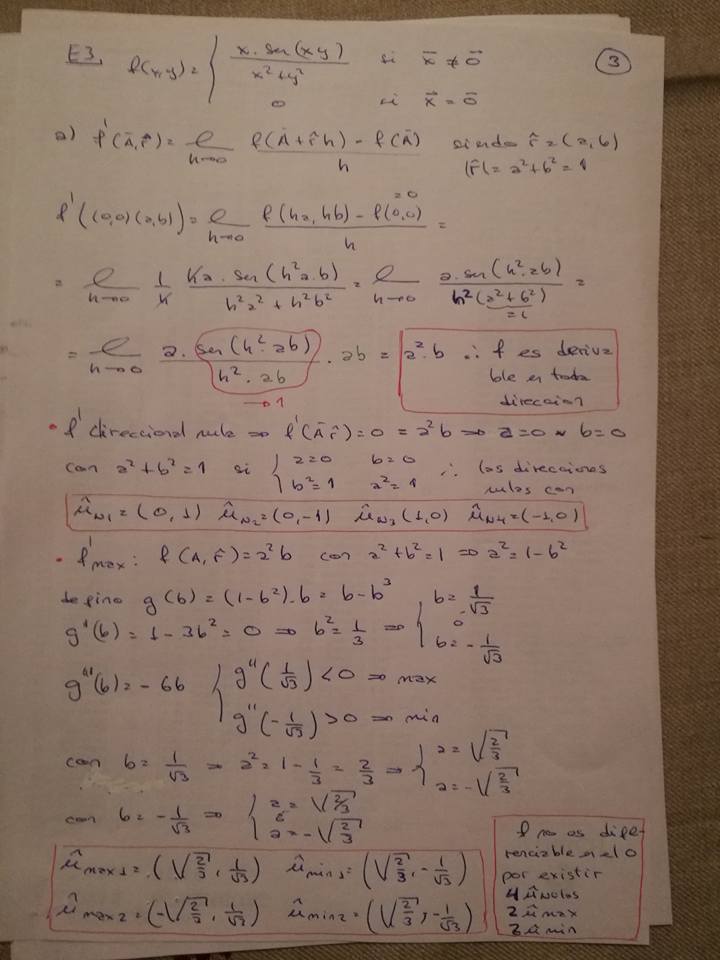 E3. f(x,y) = { x·sen(xy) / (x²+y²) si x̄ ≠ 0̄
0 si x̄ = 0̄
③
a) f'(Ā,r̂) = ℓ h→0 (f(Ā+r̂h) - f(Ā)) / h siendo r̂ = (a,b)
|r̂| = a²+b² = 1
f'((0,0)(a,b)) = ℓ h→0 (f(ha,hb) - f(0,0)) / h =
=0
= ℓ h→0 1/h ha·sen(h²a·b) / (h²a²+h²b²) = ℓ h→0 a·sen(h²·ab) / (h²(a²+b²)) =
=1
= ℓ h→0 a·sen(h²·ab) / (h²·ab) · ab = a²·b ∴ f es deriva
→1
ble en toda
direccion
• f' direccional nula ⇒ f'(Ā,r̂) = 0 = a²b ⇒ a=0 ∨ b=0
con a²+b²=1 si { a=0 b=0 ∴ las direcciones
b²=1 a²=1 nulas son
û_N1 = (0,1) û_N2 = (0,-1) û_N3 (1,0) û_N4 = (-1,0)
• f'max: f(A,r̂) = a²b con a²+b²=1 ⇒ a²=1-b²
defino g(b) = (1-b²)·b = b-b³
g'(b) = 1-3b² = 0 ⇒ b² = 1/3 ⇒ { b = 1/√3
o
b = -1/√3
g''(b) = -6b { g''(1/√3) < 0 ⇒ max
g''(-1/√3) > 0 ⇒ min
con b = 1/√3 ⇒ a² = 1 - 1/3 = 2/3 ⇒ { a = √(2/3)
a = -√(2/3)
con b = -1/√3 ⇒ { a = √(2/3)
o
a = -√(2/3)
û max1 = (√(2/3), 1/√3) û min1 = (√(2/3), -1/√3)
û max2 = (-√(2/3), 1/√3) û min2 = (√(2/3), -1/√3)
f no es dife-
renciable en el 0
por existir
4 û nulos
2 û max
2 û min